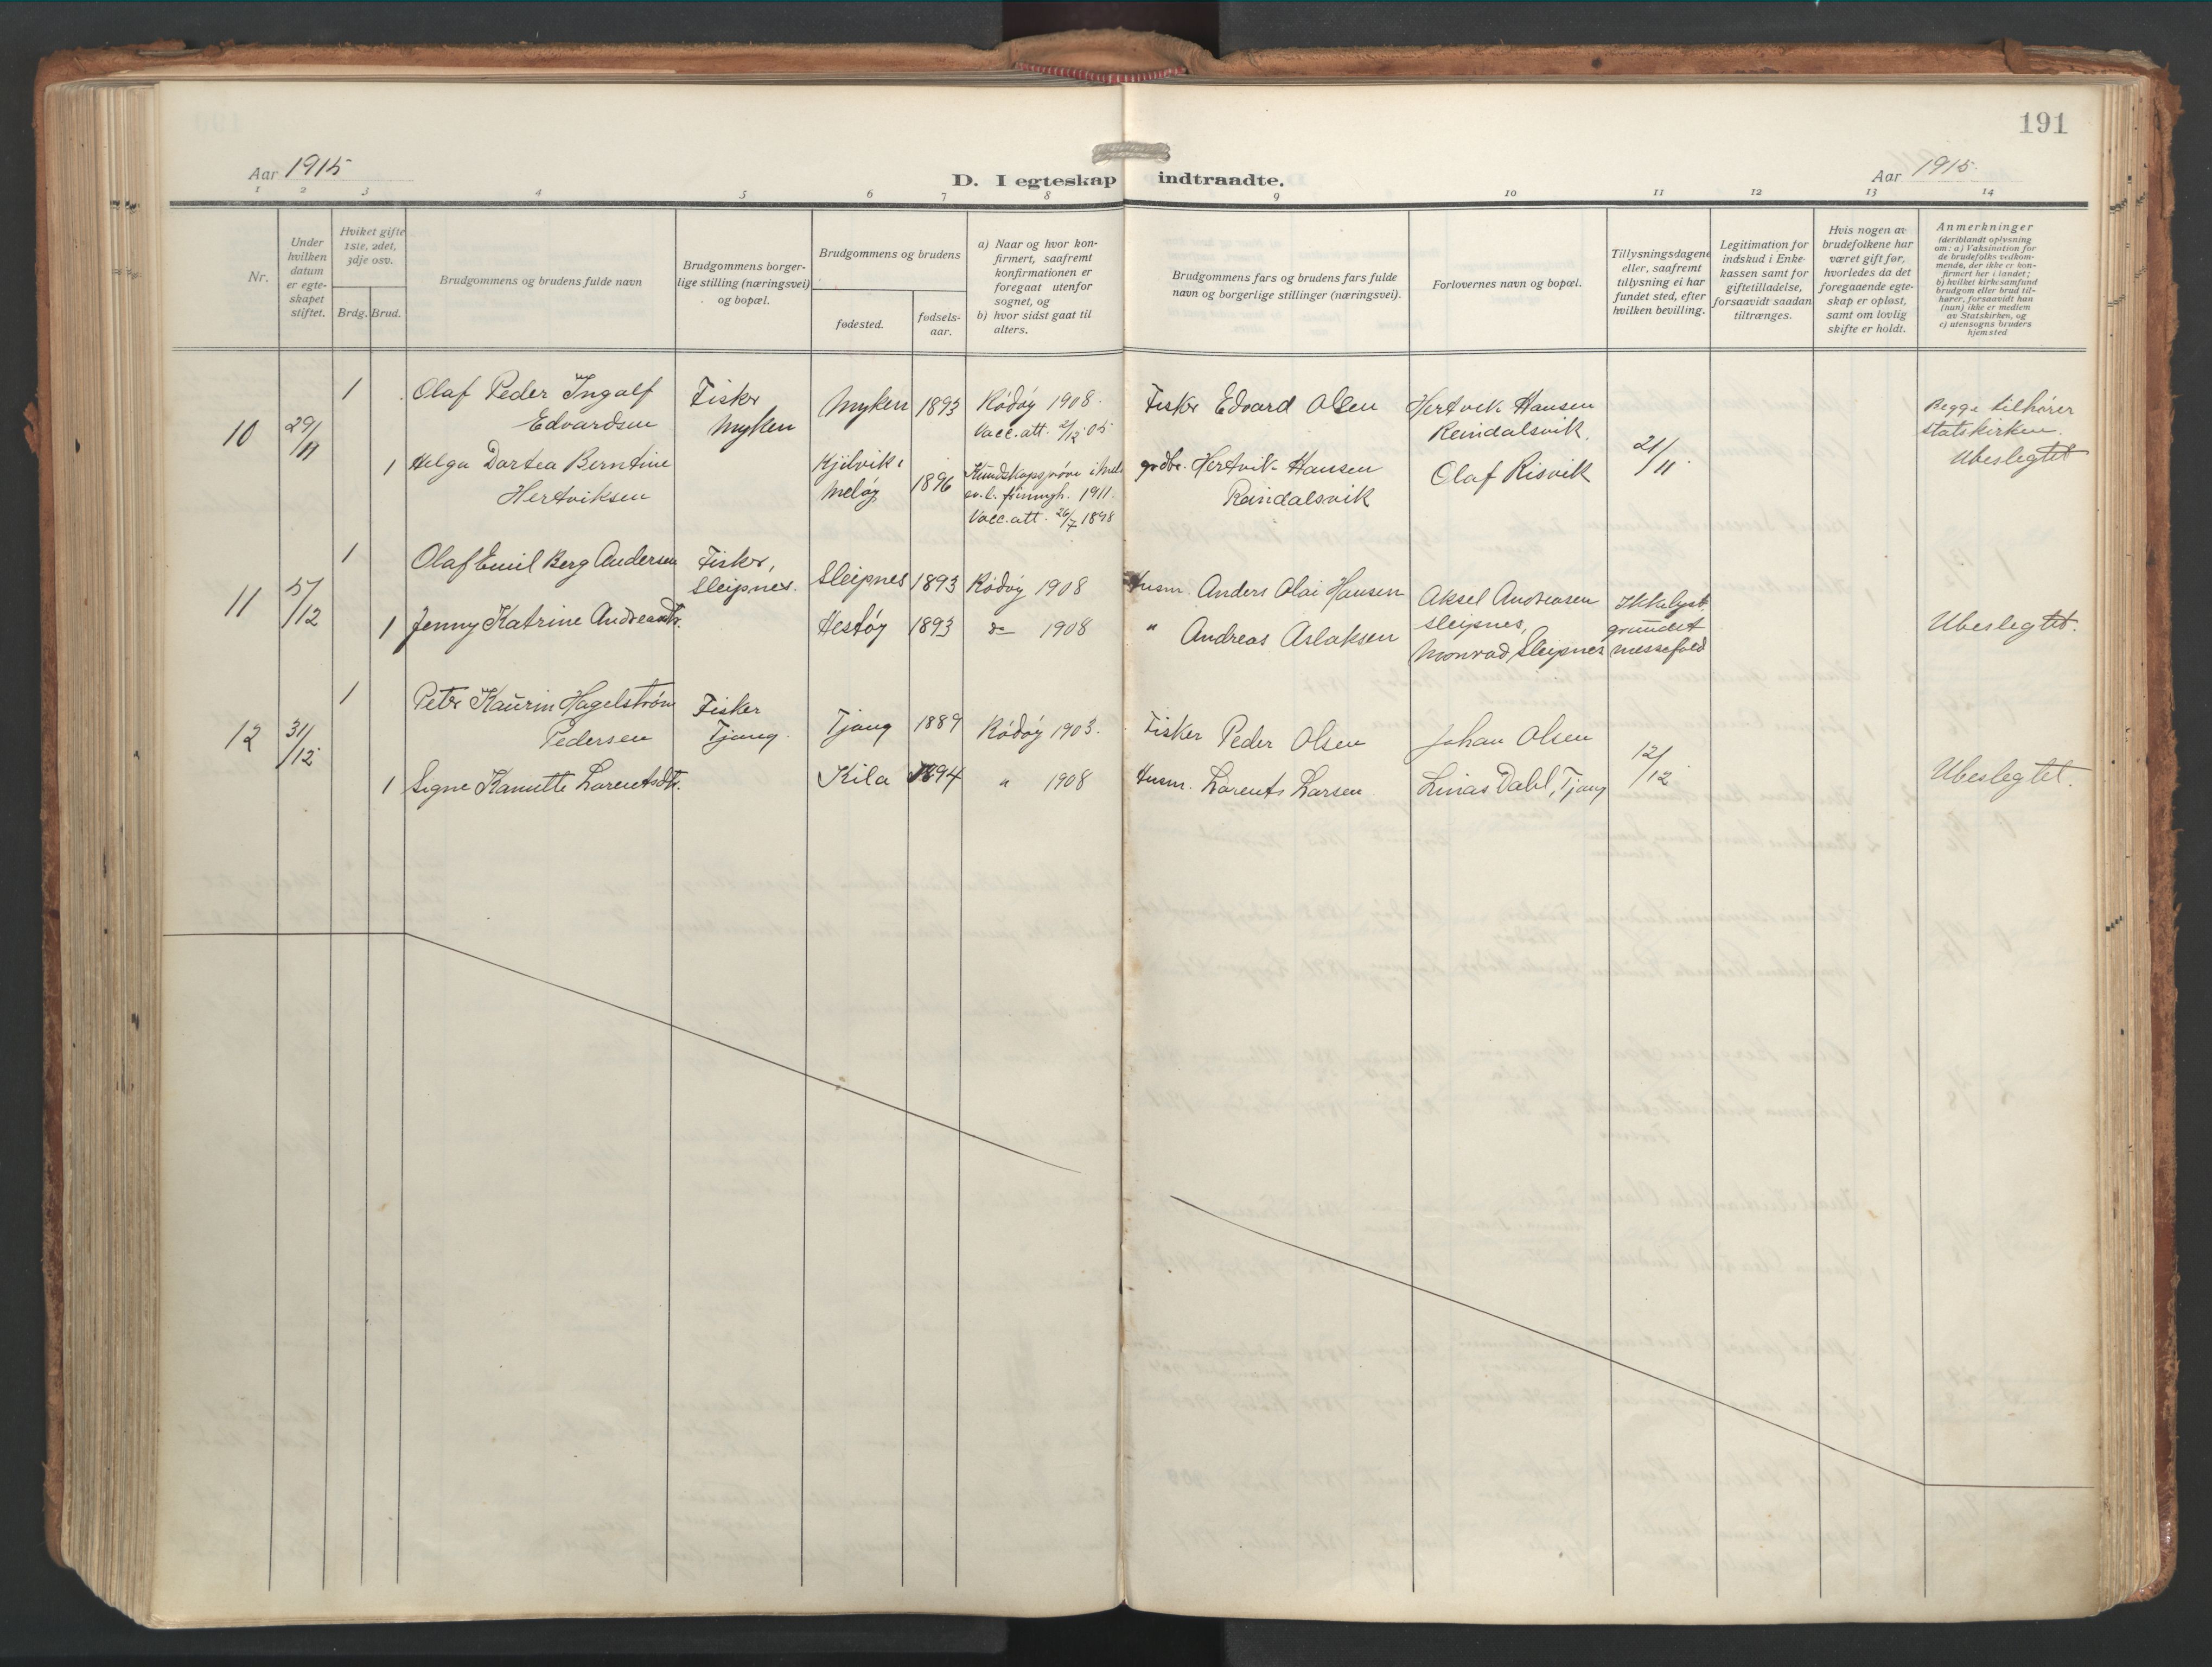 191
Aar 1915
D. I egteskap indtraadte.
Aar 1915.
1 2 3 4 5 6 7 8 9 10 11 12 13 14
Nr.
Under hvilken datum er egteskapet stiftet.
Hvilket gifte 1ste, 2det, 3dje osv.
Brdg. Brud.
Brudgommens og brudens fulde navn
Brudgommens borgerlige stilling (næringsvei) og bopæl.
Brudgommens og brudens
fødested.
fødselsaar.
a) Naar og hvor konfirmert, saafremt konfirmationen er foregaat utenfor sognet, og
b) hvor sidst gaat til alters.
Brudgommens fars og brudens fars fulde navn og borgerlige stillinger (næringsvei).
Forlovernes navn og bopæl.
Tillysningsdagene eller, saafremt tillysning ei har fundet sted, efter hvilken bevilling.
Legitimation for indskud i Enkekassen samt for giftetilladelse, forsaavidt saadan tiltrænges.
Hvis nogen av brudefolkene har været gift før, hvorledes da det foregaaende egteskap er opløst, samt om lovlig skifte er holdt.
Anmerkninger
(deriblandt oplysning om: a) Vaksination for de brudefolks vedkommende, der ikke er konfirmert her i landet; b) hvilket kirkesamfund brudgom eller brud tilhører, forsaavidt han (hun) ikke er medlem av Statskirken, og c) utensogns bruders hjemsted
10 29/11
1 Olaf Peder Ingolf Edvardsen
Fisker Myken
Myken 1893
Rödöy 1908.
Vacc. att. 2/12 05
Fisker Edvard Olsen
Hertvik Hansen Reindalsvik.
21/11.
Begge tilhører statskirken.
Ubeslegtet
1 Helga Dortea Berntine Hertviksen
Kjilvik, Meløy 1896
Kundskapsprøve i
ev. l. frimgh. 1911.
Vacc. att. 26/7 1898
grdbr. Hertvik Hansen Reindalsvik
Olaf Risvik
11 5/12
1 Olaf Emil Berg Andersen
Fisker, Sleipnes.
Sleipnes 1893 Rödöy 1908
Husm. Anders Olai Hansen
Aksel Andreasen Sleipnes,
Ikke lyst grundet messefald
Ubeslegtet.
1 Jenny Katrine Andreasdtr.
Hestöy 1893 do 1908
" Andreas Aslaksen
Monrad, Sleipnes
12 31/12
1 Petr Kaurin Hagelstrøm Pedersen
Fisker Tjong.
Tjong 1889 Rödöy 1903.
Fisker Peder Olsen
Johan Olsen
12/12
Ubeslegtet.
1 Signe Kanutte Lorentsdtr.
Kila 1894 " 1908
Husm. Lorents Larsen
Linas Dahl, Tjong